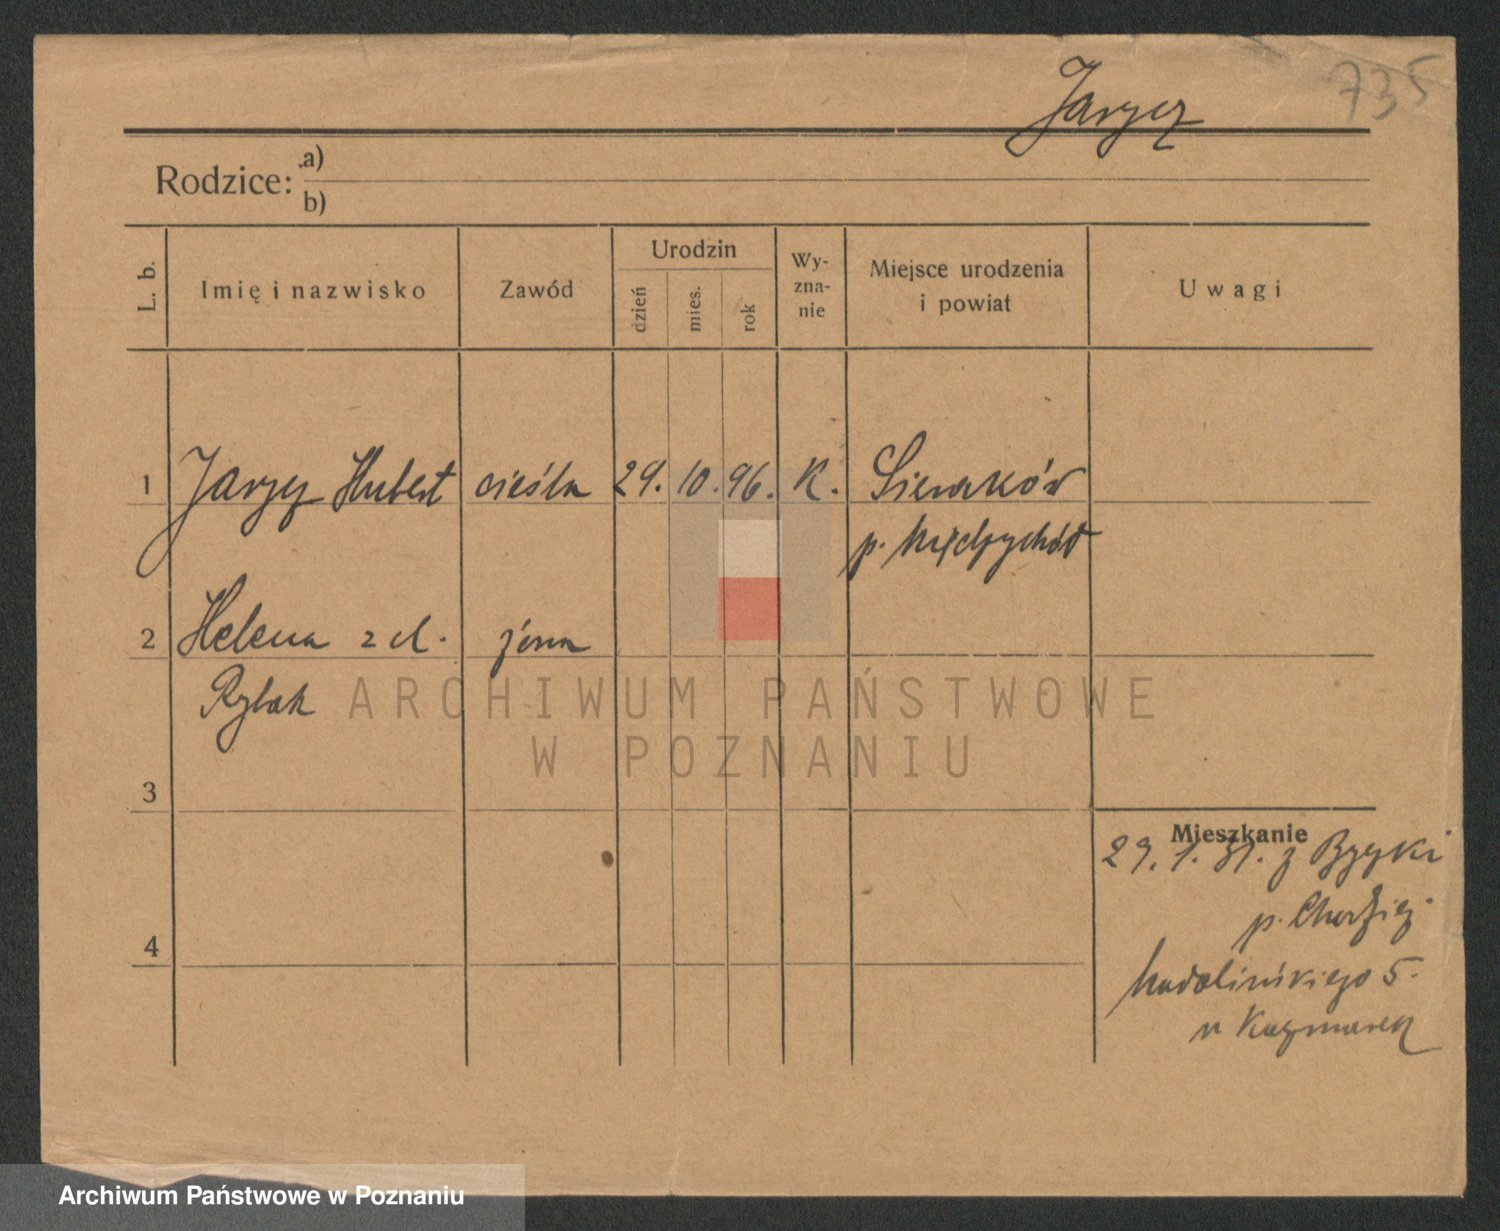 735
Jarycz
Rodzice: a)
b)
L. b. Imię i nazwisko Zawód Urodzin dzień mies. rok Wy-zna-nie Miejsce urodzenia i powiat Uwagi
1 Jarycz Hubert cieśla 29. 10. 96. K. Sieraków
p. Międzychód
2 Helena z d. żona
Rybak
ARCHIWUM PAŃSTWOWE
W POZNANIU
3
Mieszkanie
29. 1. 31. z
p.
4
Madalińskiego 5.
u Kaczmarek
Archiwum Państwowe w Poznaniu